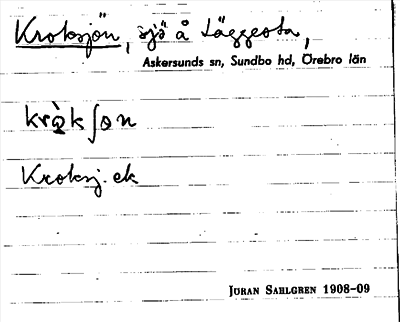 Kroksjön, sjö å Läggesta,
Askersunds sn, Sundbo hd, Örebro län
krò̀kʃɷn
Kroksj. ek
JÖRAN SAHLGREN 1908-09